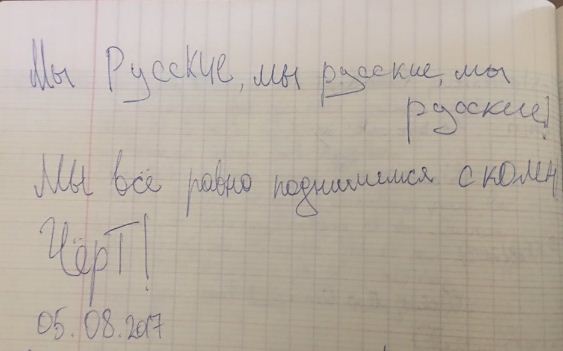 Мы Русские, мы русские, мы
русские!
Мы всё равно поднимемся с колен
Чёрт!
05.08.2017